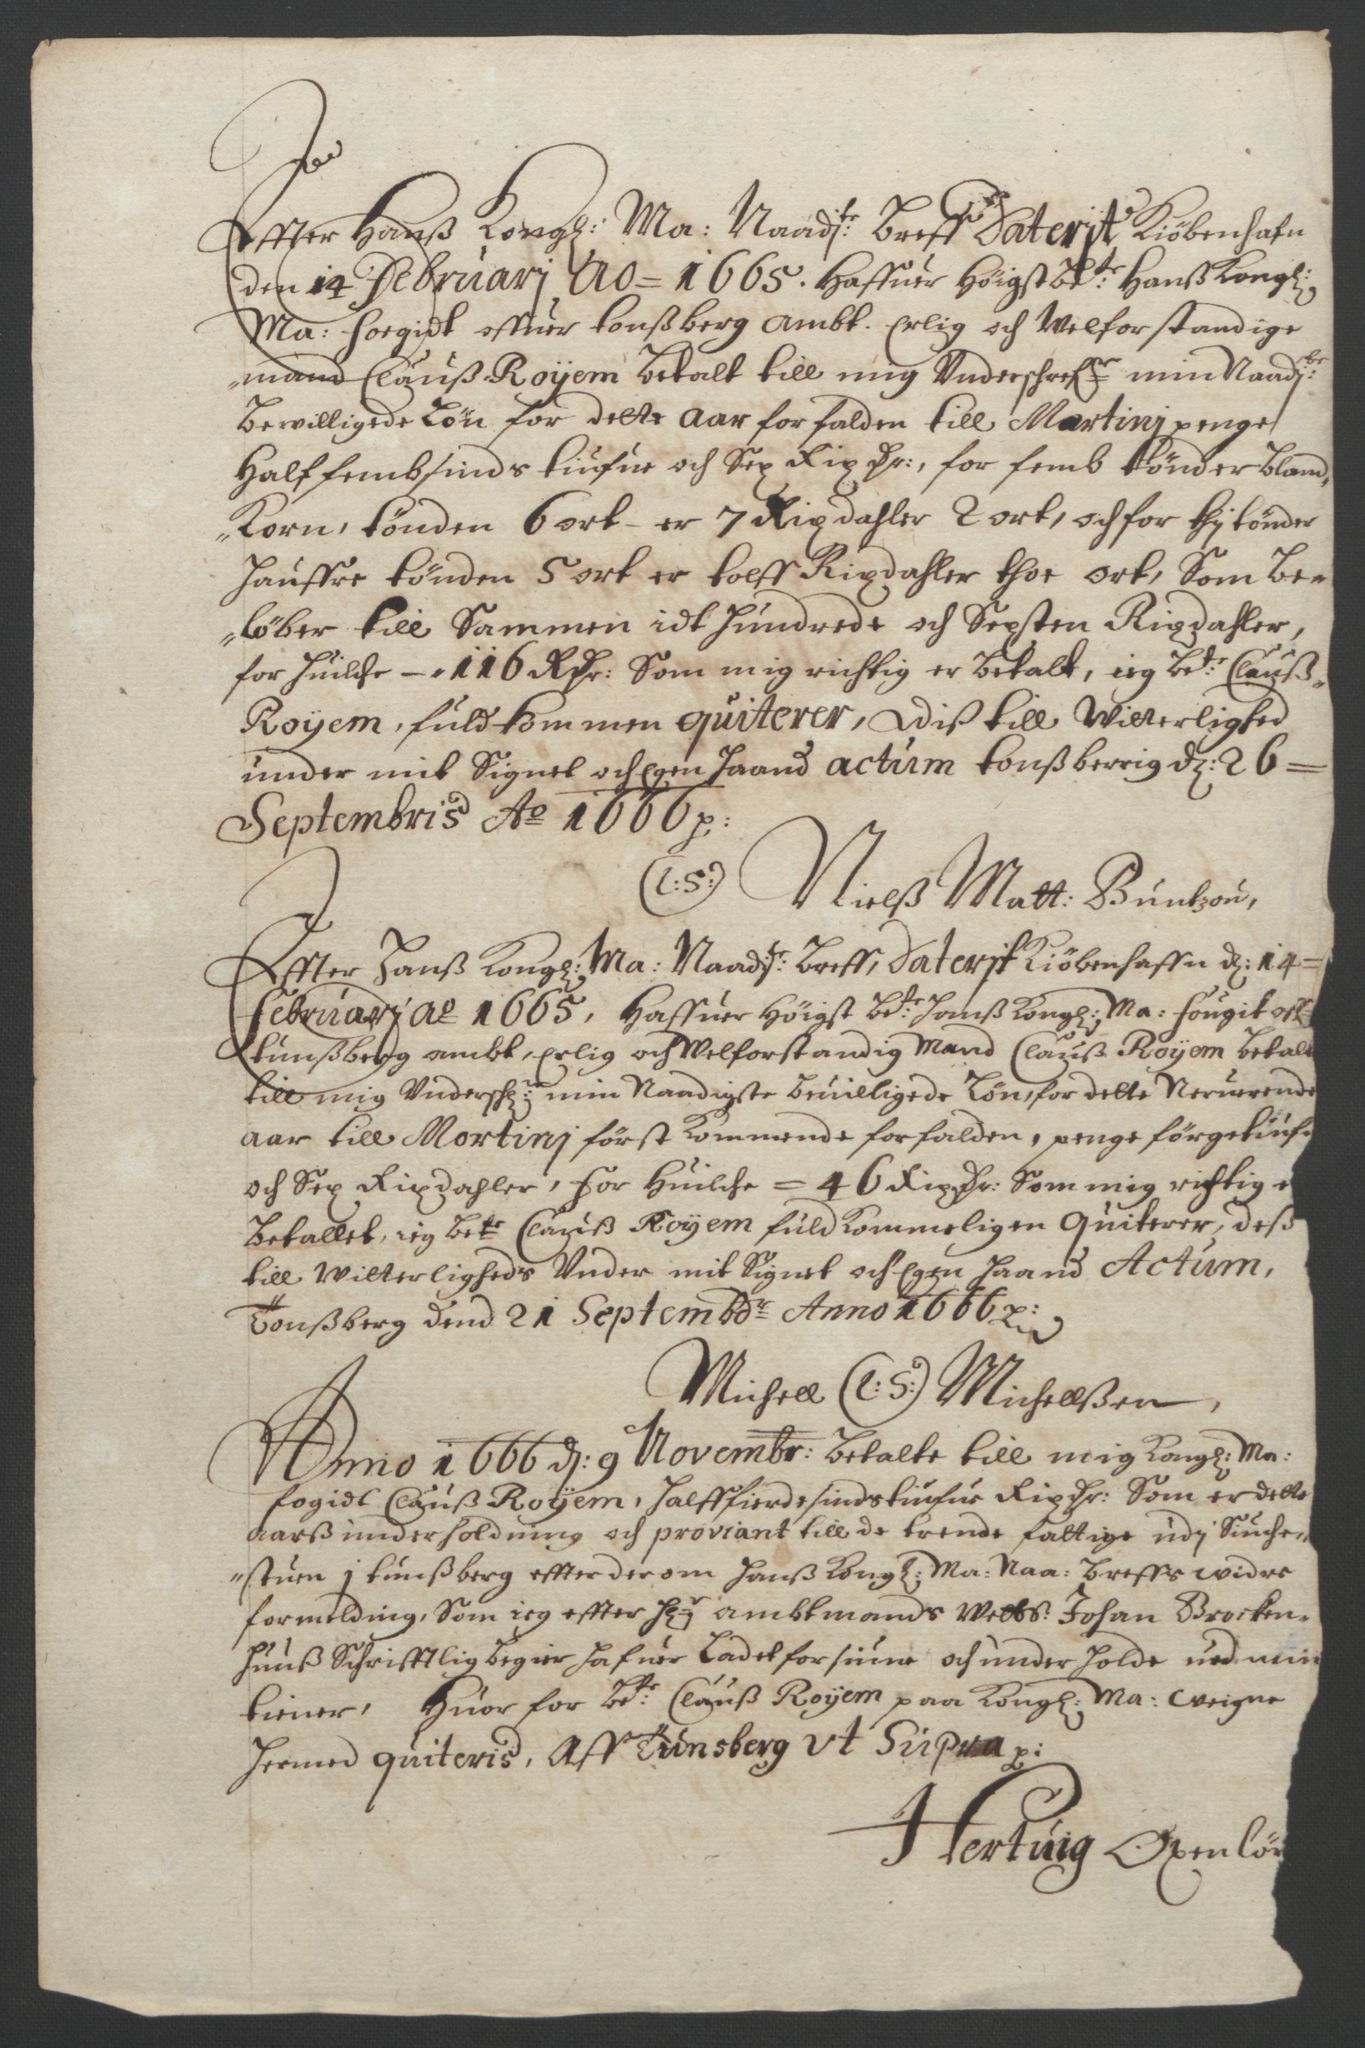 Effter Hanß Kongl: Ma: Naadste: Breff Daterit Kiøbenhafn
den 14 Februarj Ao= 1665. Haffuer Høigstbte: Hanß Kongl:
Ma: Foegidt offuer tonßberg Ambt. Erlig och Welforstandige
„mand Clauß Royem Betalt till mig Underschrefne min Naadste:
Bewilligede Løn for dette Aar forfalden till Martinj penge
Halffembsinds tiufue och Sex Rixdr:, for femb tønder bland„
„Korn, tønden 6 ort – er 7 Rixdahler 2 ort, och for thj tønder
hauffre tønden 5 ort er tolff Rixdahler thoe ort, Som Be„
„løber till Sammen idt hundrede och Sexsten Rixdahler,
for huilche – „116 Rdr: Som mig richtig er betalt, ieg bete: Clauß„
Royem, fuldkommen quiterer, Dis till Witterlighed
under mit Signet och Egen haand actum tonßberrig d: 26=
Septembris Ao 1666 p:
(L:S:) Nielß Matt: Buntzou,
Effter Hanß Kongl: Ma: Naadste: breff, Daterit Kiøbenhaffn d: 14=
Februarj Ao 1665, Haffuer Høigst bete: Hanß Kongl: Ma: fougit off
tunßberg ambt, Erlig och Welforstandig Mand Clauß Royem betalt
till mig Undersch: min Naadigste beuilligede Løn, for dette Neruerende
aar till Mortinj først Kommende forfalden, penge førgetiufue
och Sex Rixdahler, for Huilche = 46 Rixdr: Som mig richtig e
betallet, ieg bete Clauß Royem fuldkommeligen Quiterer, deß
till Witterligheds Under mit Signet och Egen haand Actum,
Tonßberg Dend 21 Septembr Anno 1666 p:
Michell (L:S:) Michellßen,
Anno 1666 d: 9 Novembr: betalte till mig Kongl: Ma:
fogidt Clauß Royem, halfffierdesindstiufue Rixdr: Som er dette
aarß underholdning och proviant till de trende fattige udj Siuche„
„stuen j tunßberg effter derom Hanß Kongl: Ma: Naa: breffs widre
formelding, Som ieg effter Hr ambtmands Welb: Johan Brocken„
huuß Schrifftlig begier hafuer ladet forsiune och underholde ued min
tiener, Huor for bte: Clauß Royem paa Kongl: Ma: weigne
hermed quiteris, Aff Tünsberg ut Supra p:
Hertuig Oxenlør